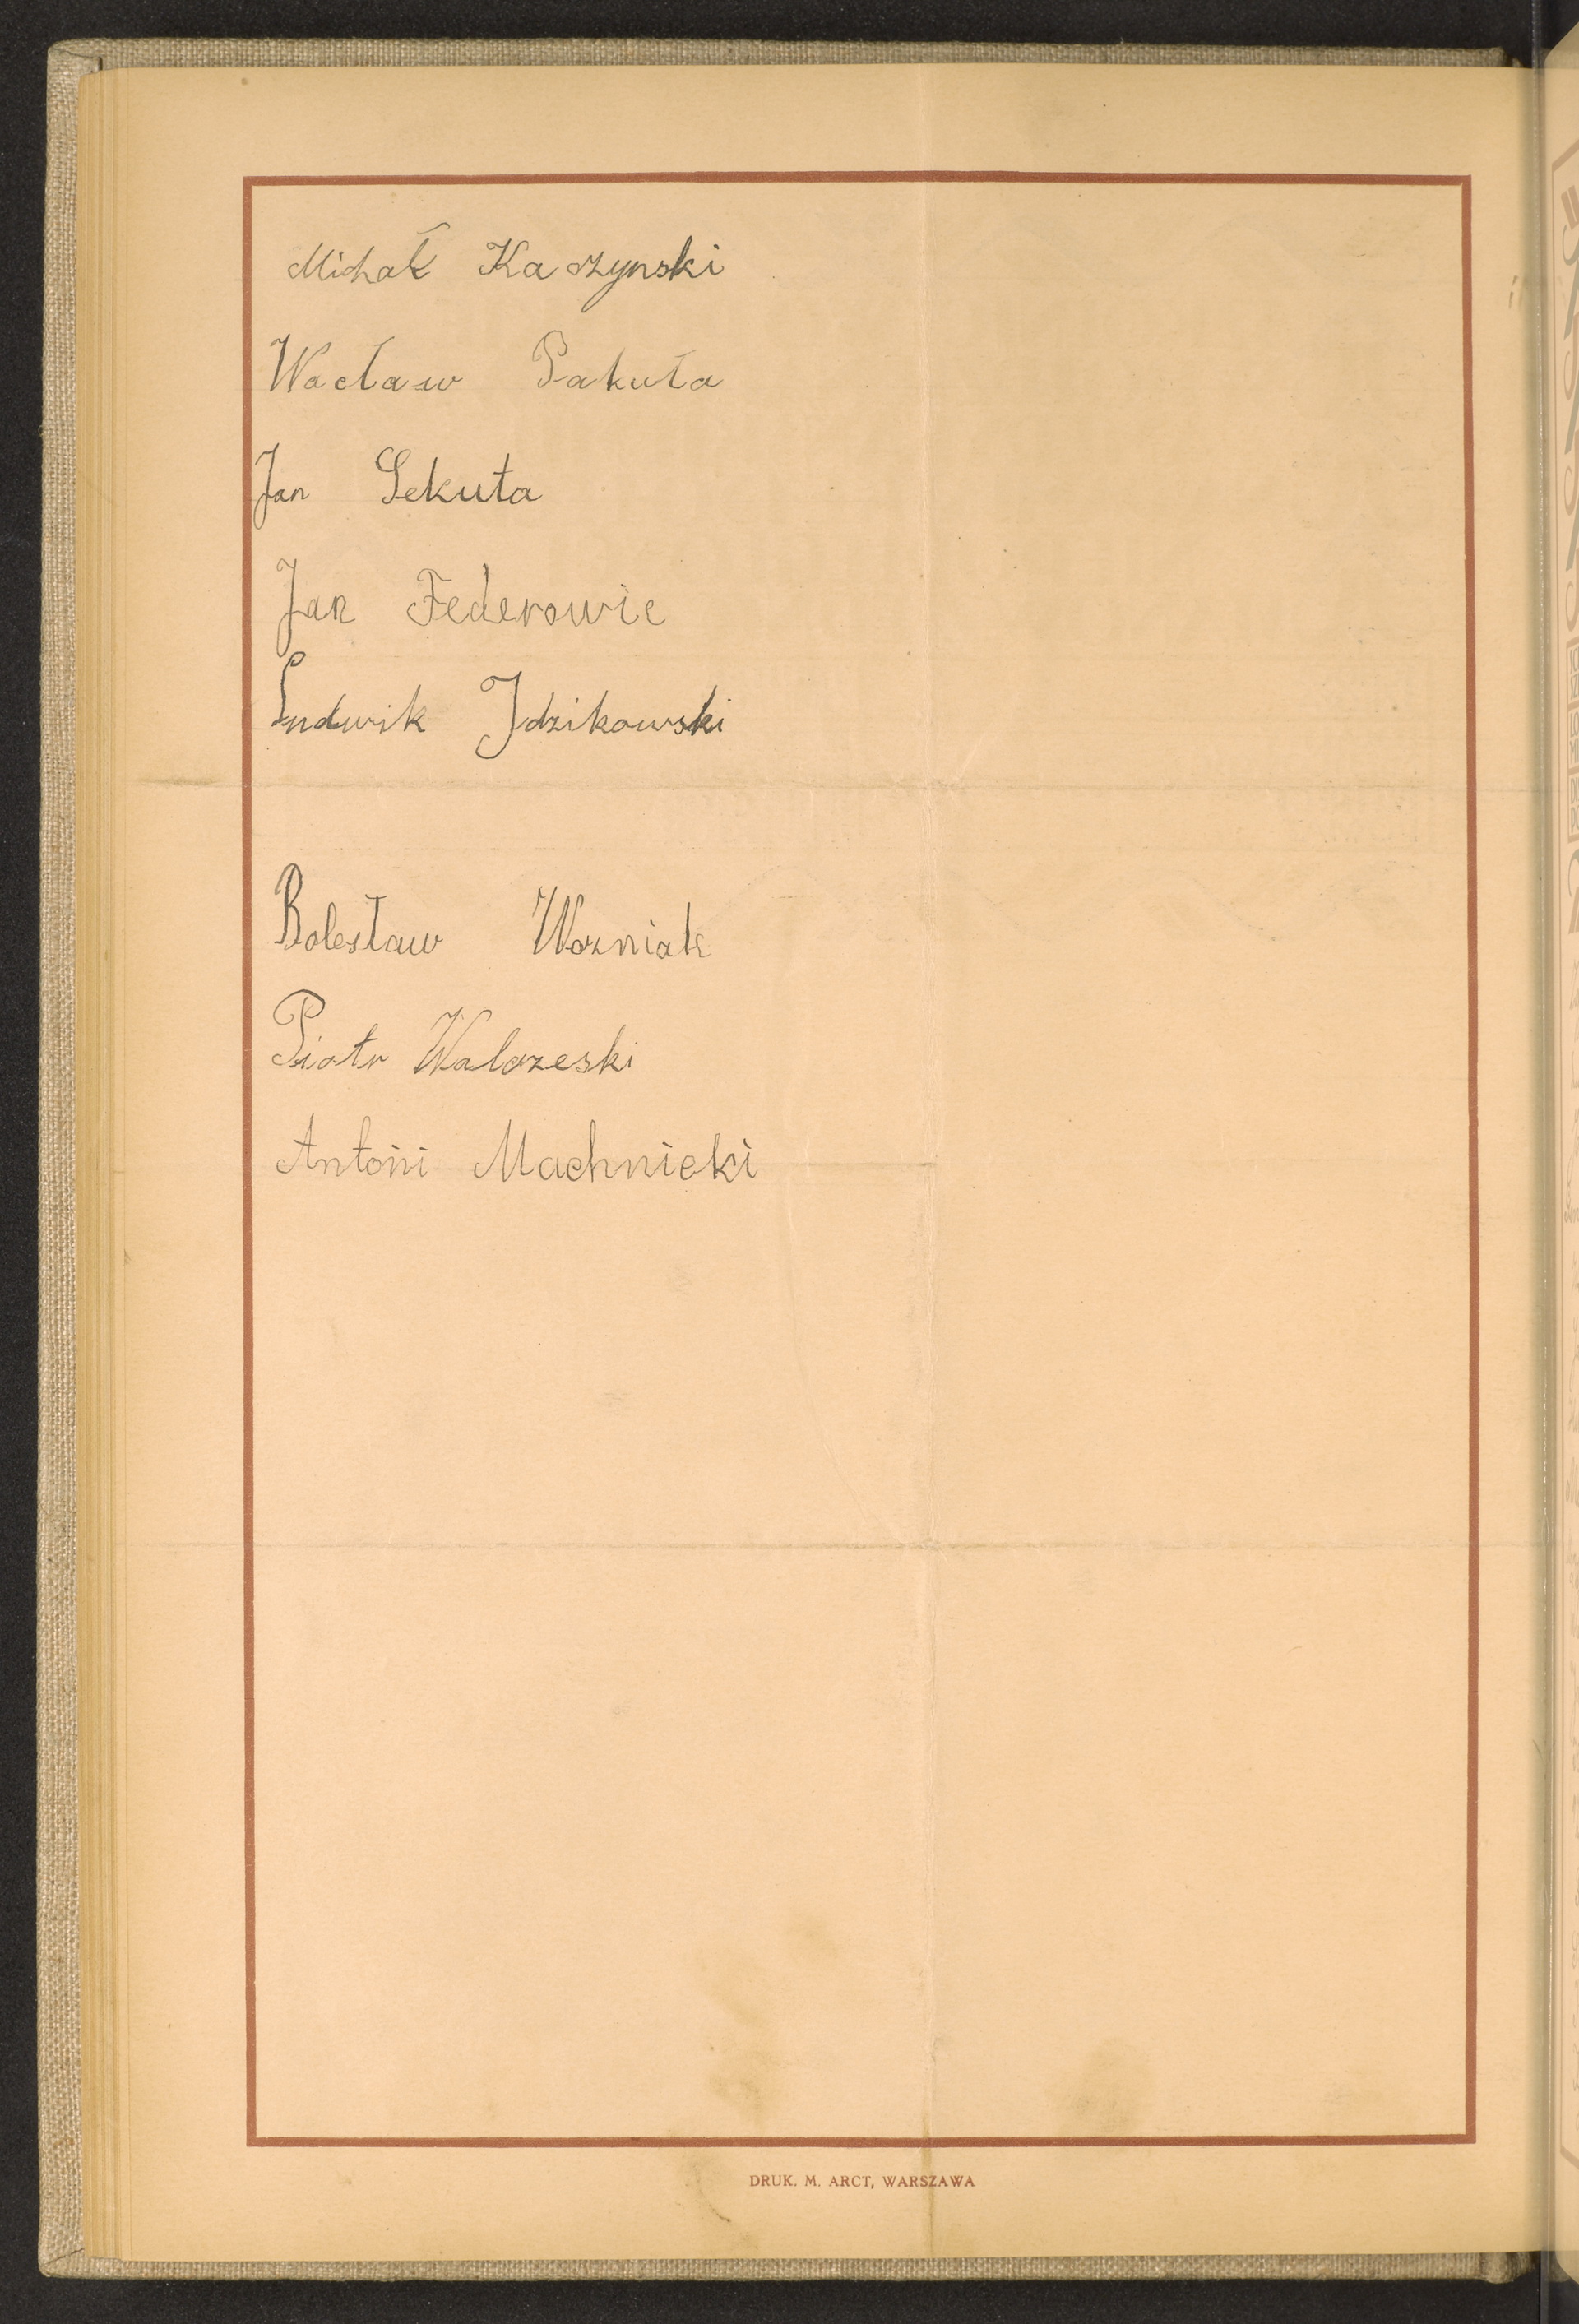 Michał Kaczynski
Wacław Pakuła
Jan Sekuła
Jan Federowic
Ludwik Idzikowski
Bolesław Wozniak
Piotr Walczeski
Antoni Machnicki
DRUK. M. ARCT, WARSZAWA